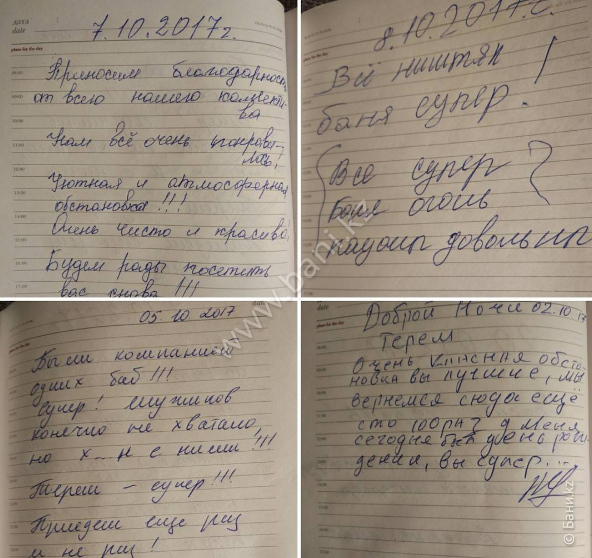 дата
date
7.10.2017г.
plans for the day
Приносим благодарность
от всего нашего коллекти-
ва
Нам всё очень понрави-
лось!
Уютная и атмосферная
обстановка!!!
Очень чисто и красиво.
Будем рады посетить
вас снова!!!
8.10.2017г.
Всё ништяк
баня супер. !
Все супер
Баня огонь
пацаны довольны
05 10 2017
Были компанией
одних баб!!!
Супер! Мужиков
конечно не хватало,
но х...н с ними!!!
Терем – супер!!!
Приедем еще раз
и не раз!
date
Доброй Ночи 02.10.17
plans for the day
Терем
Очень классная обста-
новка вы лучшие, мы
вернемся сюда ещё
сто
у меня
сегодня был день рож-
дения, вы супер...
www.bani.kz
© Бани.kz